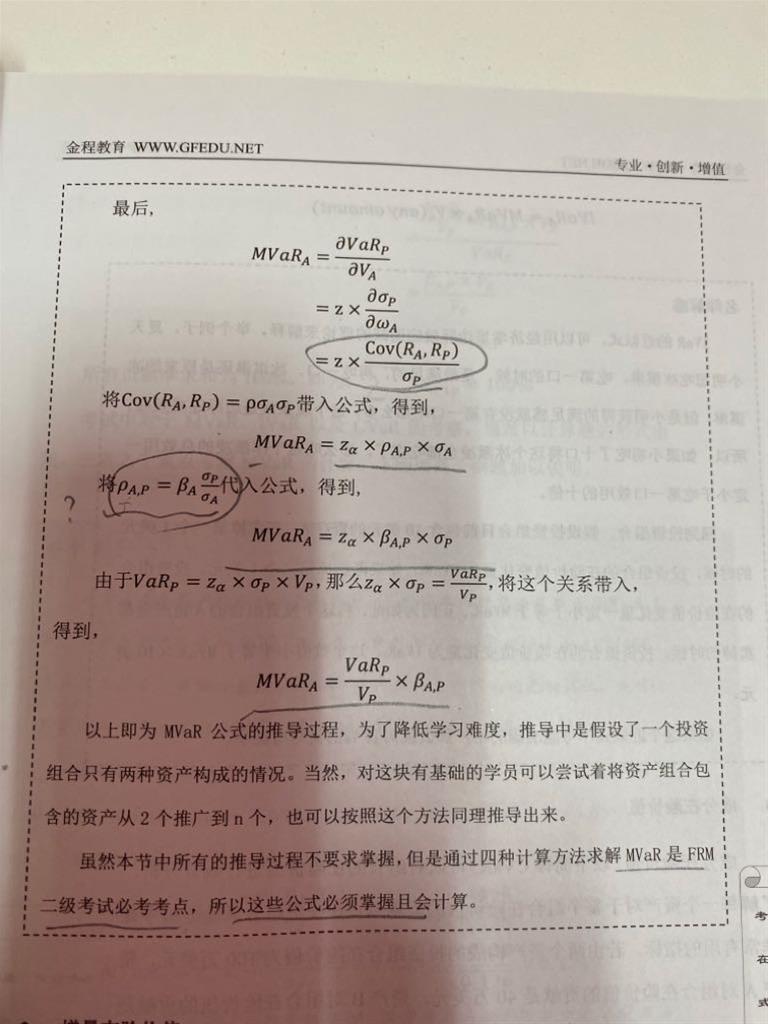 金程教育 WWW.GFEDU.NET
专业·创新·增值
最后,
MVaR_A = ∂VaR_P / ∂V_A
= z × ∂σ_P / ∂ω_A
= z × Cov(R_A, R_P) / σ_P
将Cov(R_A, R_P) = ρσ_Aσ_P带入公式，得到，
MVaR_A = z_α × ρ_{A,P} × σ_A
将ρ_{A,P} = β_A σ_P/σ_A代入公式，得到,
?
MVaR_A = z_α × β_{A,P} × σ_P
由于VaR_P = z_α × σ_P × V_P, 那么z_α × σ_P = VaR_P/V_P, 将这个关系带入,
得到,
MVaR_A = VaR_P/V_P × β_{A,P}
以上即为 MVaR 公式的推导过程，为了降低学习难度，推导中是假设了一个投资
组合只有两种资产构成的情况。当然，对这块有基础的学员可以尝试着将资产组合包
含的资产从 2 个推广到 n 个，也可以按照这个方法同理推导出来。
虽然本节中所有的推导过程不要求掌握，但是通过四种计算方法求解 MVaR 是 FRM
二级考试必考考点，所以这些公式必须掌握且会计算。
考
在
式